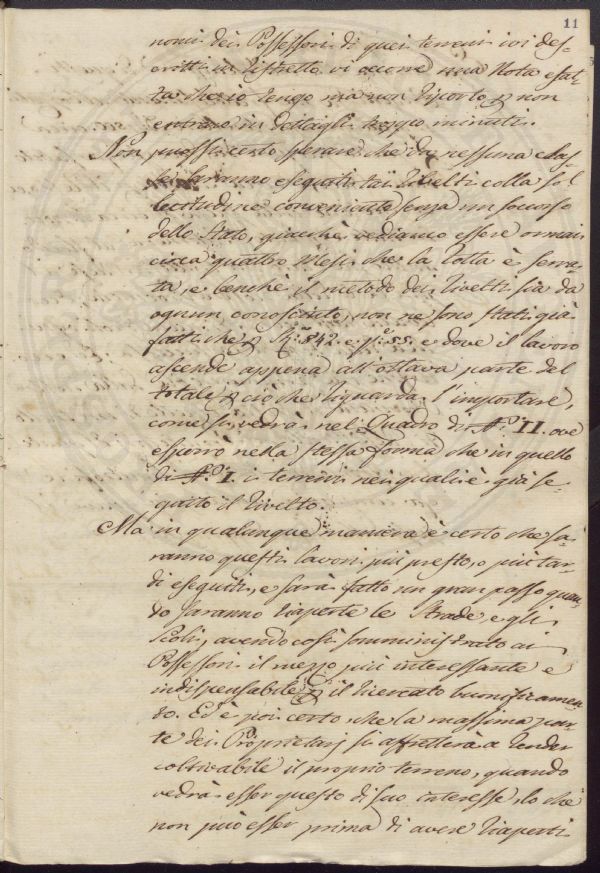 11
nomi dei Possessori di quei terreni ivi des-
critti in ristretto vi occorre una Nota esat-
ta che io tengo ma non riporto p non
entrare in dettagli troppo minuti.
Non puossi certo sperare che da nessuna
saranno eseguiti tai rivolti colla sol
lecitudine conveniente senza un soccorso
dello Stato, giacchè vediamo essere ormai
circa quattro Mesi che la Rotta è serra-
ta, e benchè il metodo dei Rivolti sia da
ognun conosciuto, non ne sono stati già
fatti che p 842. e p. 55. e dove il lavoro
ascende appena all'ottava parte del
totale p ciò che riguarda l'importare,
come si vedrà nel Quadro di N.o II. ove
esporrò nella stessa forma che in quello
di N.o I. i terreni nei quali è già se-
guito il rivolto.
Ma in qualunque maniera è certo che sa-
ranno questi lavori più presto, o più tar-
di eseguiti, e sarà fatto un gran passo quan-
do saranno riaperte le Strade, e gli
Scoli, avendo così somministrato ai
Possessori il mezzo più interessante e
indispensabile p il ricercato buonificamen-
to. Ed è poi certo che la massima par-
te dei Proprietarj si affretterà a render
coltivabile il proprio terreno, quando
vedrà esser questo di suo interesse, lo che
non può esser prima di avere riaperti